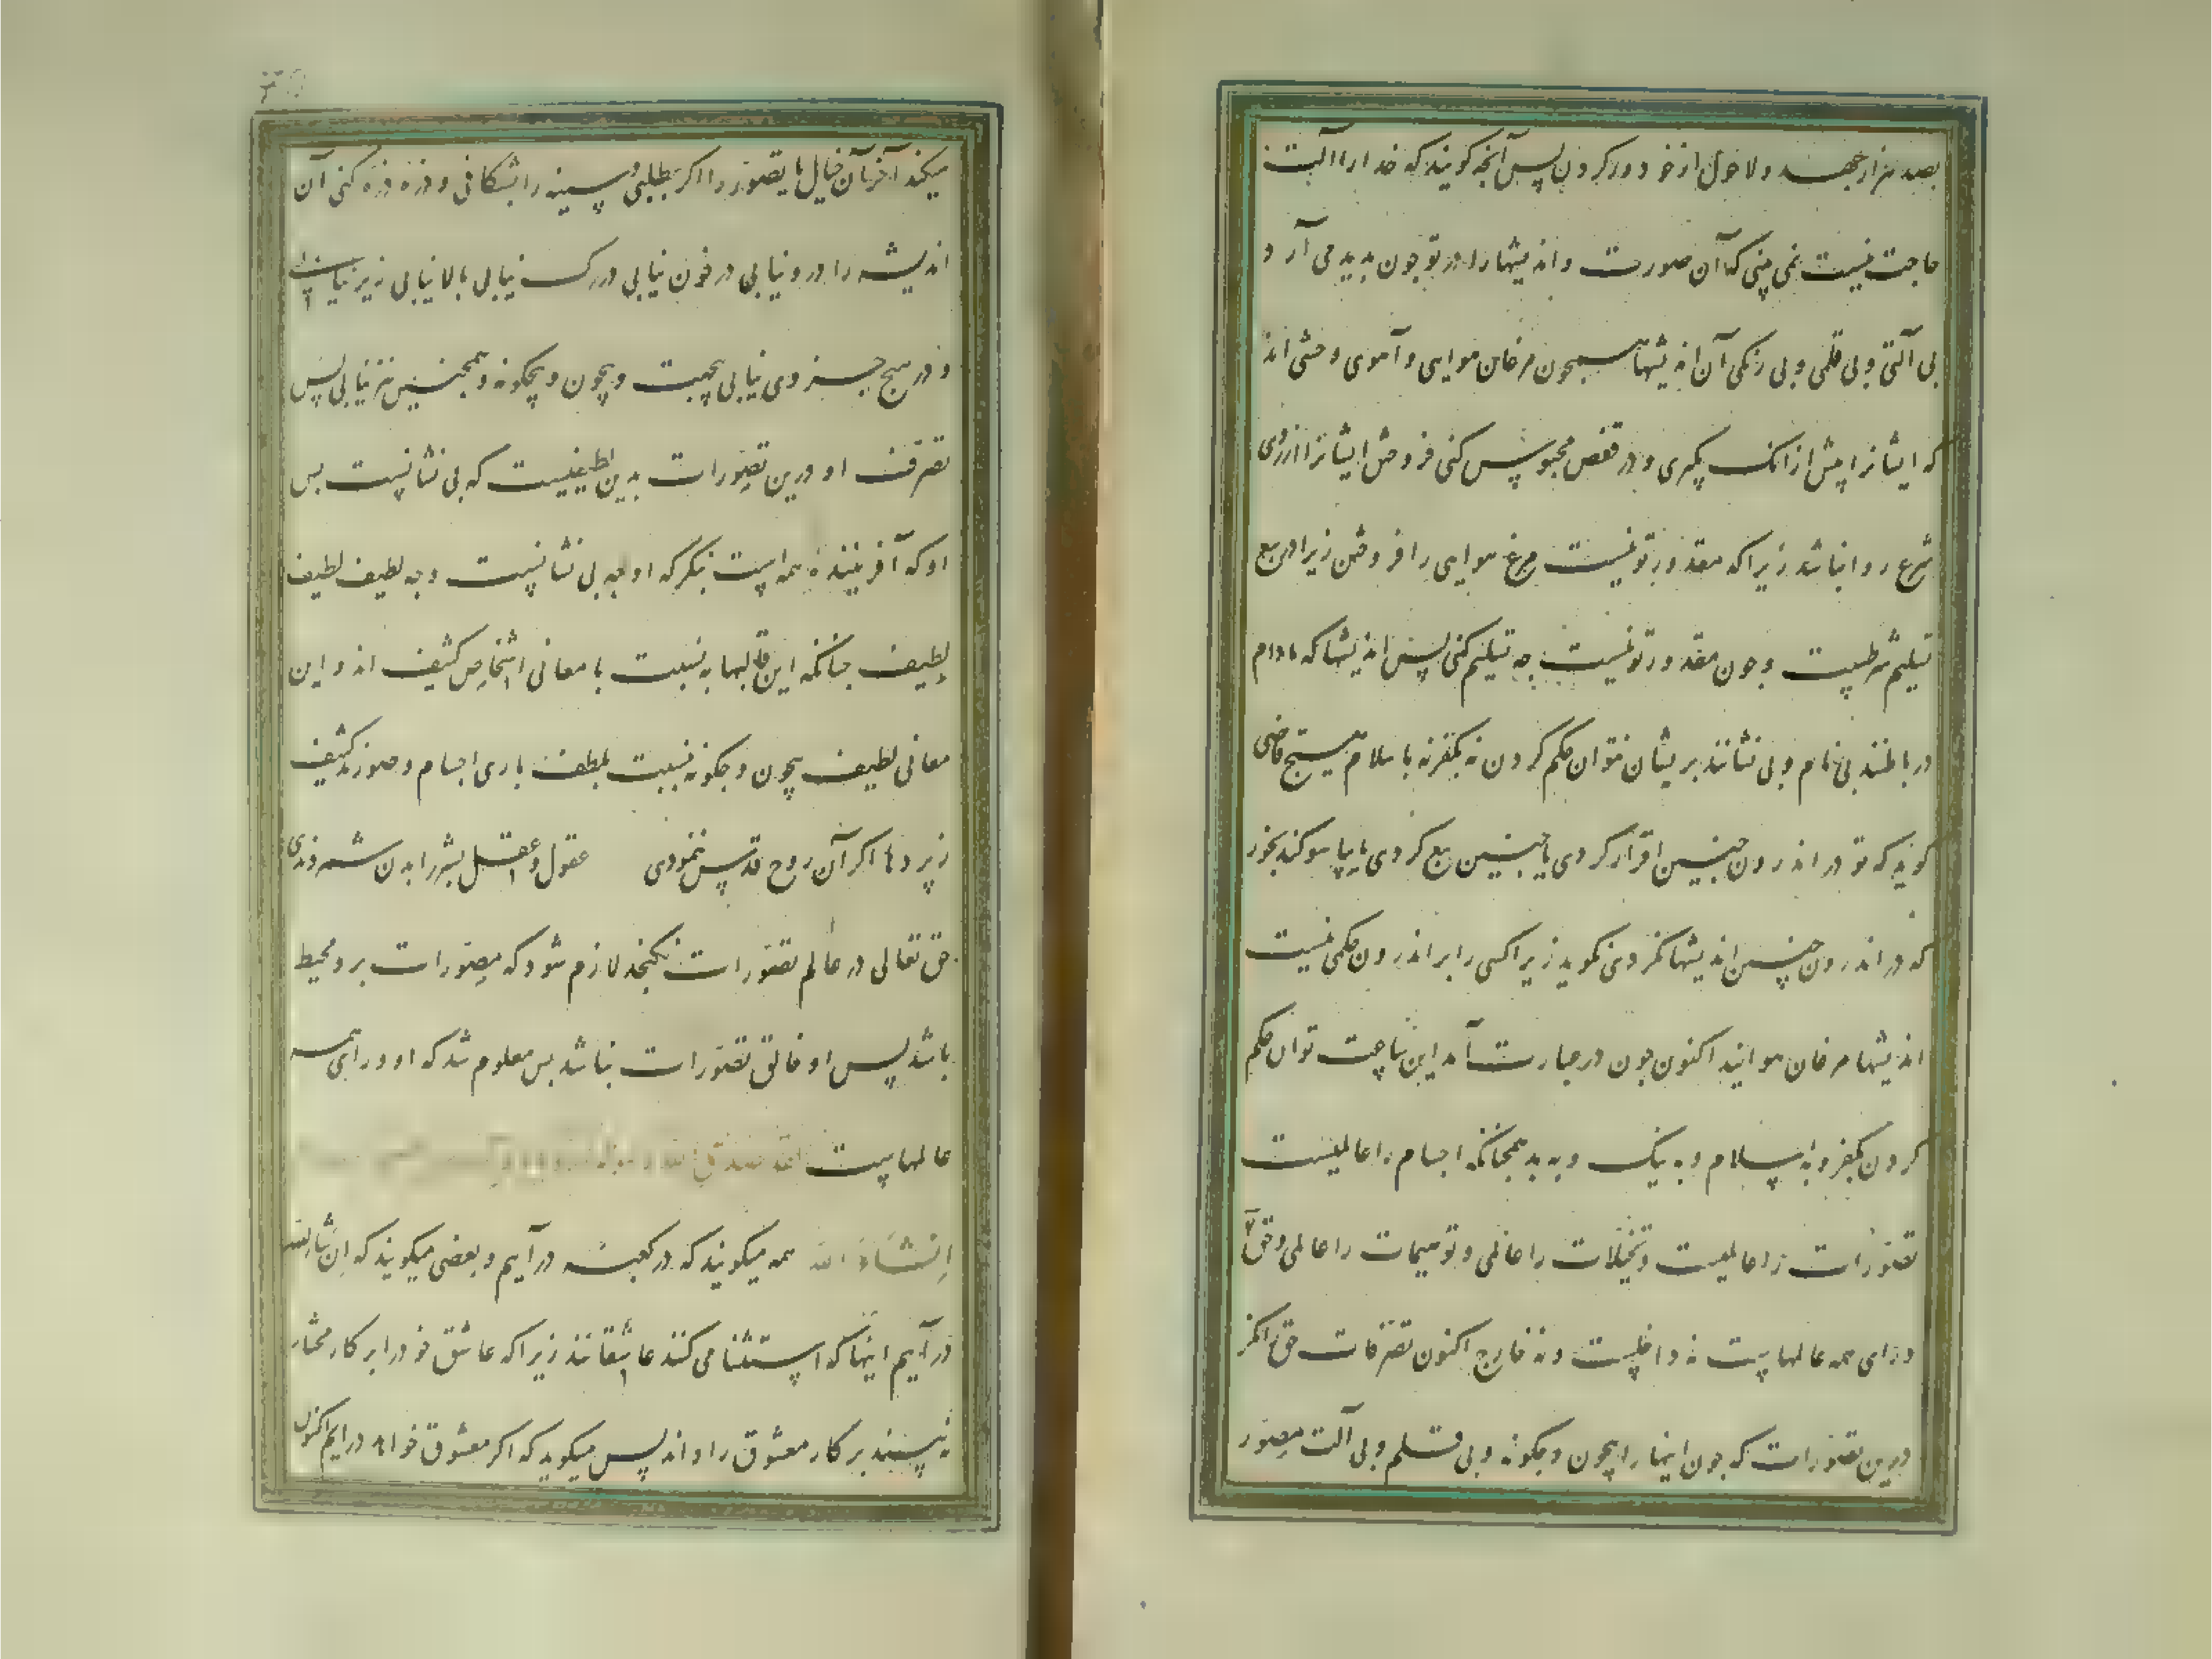 بصد هزار جهد و لاحول از خود دور کردن پس آنچه گویند که خدا را آلت
حاجت نیست نمی بینی که آن صورت و اندیشها را در تو چون بدید می آرد
بی آلتی و بی قلمی و بی رنگی آن اندیشها همچون مرغان هوایی و آهوی وحشی اند
که ایشانرا پیش از انک بگیری و در قفص محبوس کنی فروختن ایشانرا از روی
شرع روا نباشد زیرا که مقدور تو نیست مرغ هوایی را فروختن زیرا در بیع
تسلیم شرطست و چون مقدور تو نیست چه تسلیم کنی پس اندیشها که مادام
در باطنند بی نام و بی نشانند بریشان نتوان حکم کردن نه بکفر نه باسلام هیچ قاضی
گوید که تو در اندرون چنین اقرار کردی یا چنین بیع کردی یا بیا سوگند بخور
که در اندرون چنین اندیشها نکردی نگوید زیرا کسی را بر اندرون حکمی نیست
اندیشها مرغان هوایند اکنون چون در عبارت آمد این ساعت توان حکم
کردن بکفر و به اسلام و به نیک و به بد همچنانکه اجسام را عالمیست
تصورات را عالمیست و تخیلات را عالمی و توهمات را عالمی و حق
ورای همه عالمهاست نه داخلست و نه خارج اکنون تصرفات حق نگر
درین تصورات که چون اینها را بیچون و چگونه و بی قلم و بی آلت مصور
میکند آخر آن خیال یا تصور را اگر بطلبی و سینه را بشکافی و ذره ذره کنی آن
اندیشه را درو نیابی در خون نیابی در رگ نیابی بالا نیابی زیر نیابی
و در هیچ جزوی نیابی بیجهت و بیچون و بیچگونه و همچنین نیز نیابی پس
تصرف او درین تصورات بدین لطیفیست که بی نشانیست بس
او که آفریننده همه است بنگر که او چه بی نشانیست و چه لطیف لطیف
لطیف چنانکه این قالبها به نسبت با معانی اشخاص کثیف اند و این
معانی لطیف بیچون و چگونه نسبت بلطف باری اجسام و صورند کثیف
ز پردها اگر آن روح قدس بنمودی عقول و عقل بشر را بدن شمردندی
حق تعالی در عالم تصورات نگنجد لازم شود که مصورات برو محیط
باشد پس او خالق تصورات نباشد بس معلوم شد که او ورای همه
عالمهاست
ان شاء الله همه میگویند که در کعبه در آییم و بعضی میگویند که ان شاء الله
در آییم اینها که استثنا می کنند عاشقانند زیرا که عاشق خود را بر کار مختار
نه بیند بر کار معشوق را داند پس میگوید که اگر معشوق خواهد درایم اکنون